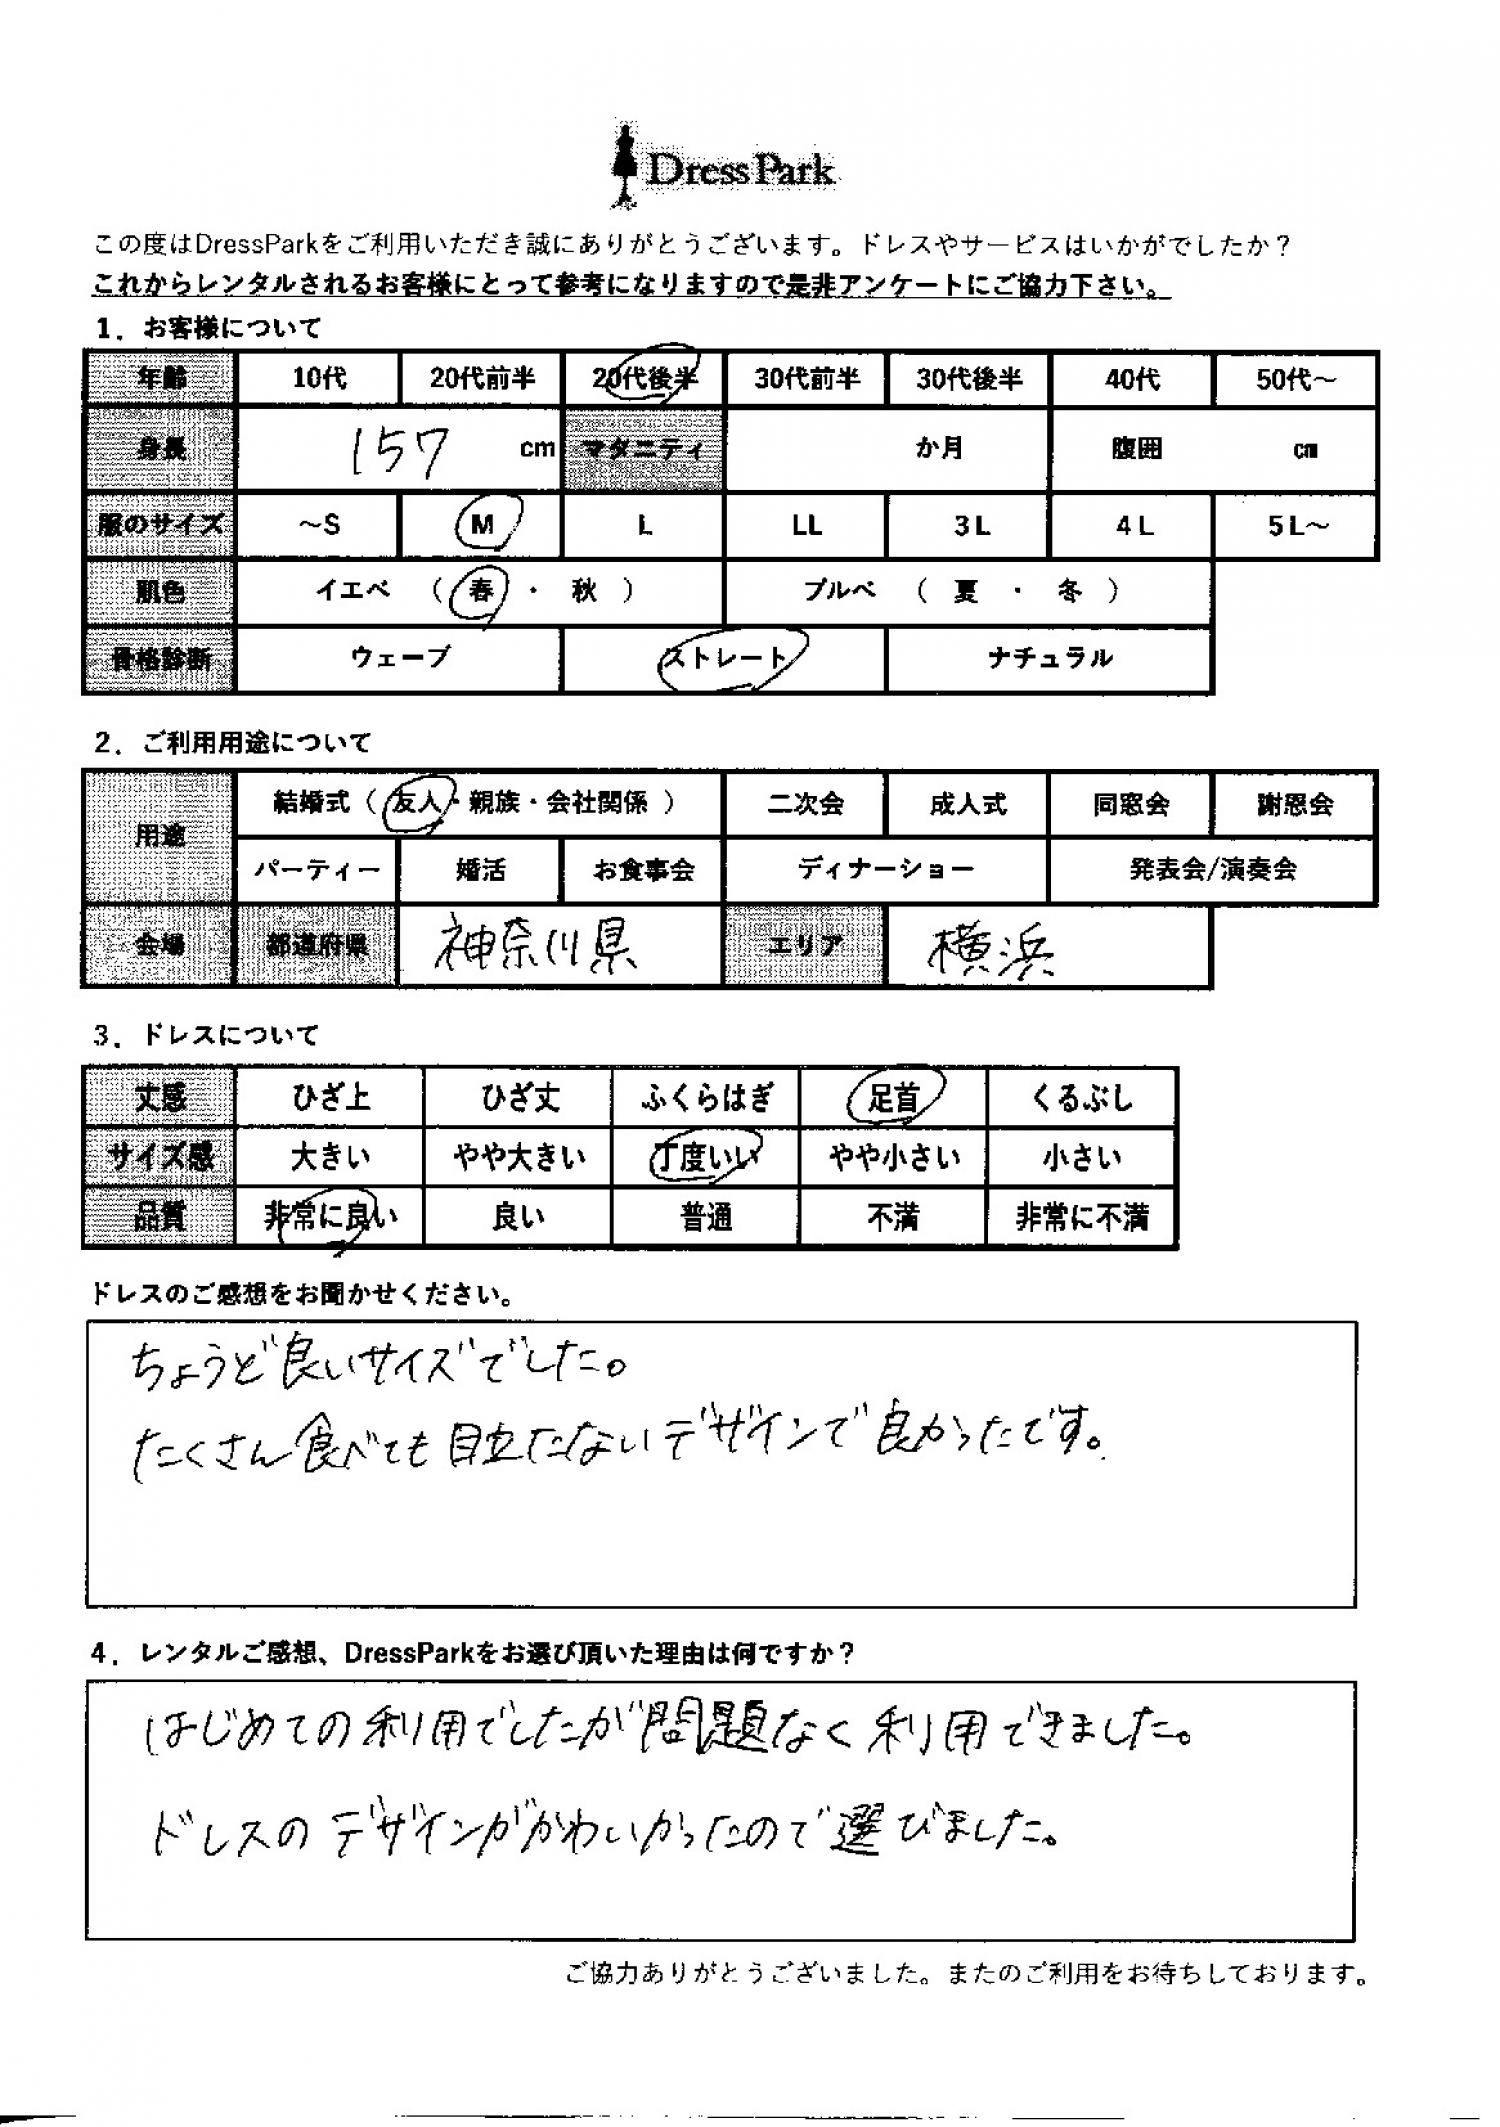 DressPark
この度はDressParkをご利用いただき誠にありがとうございます。ドレスやサービスはいかがでしたか？
これからレンタルされるお客様にとって参考になりますので是非アンケートにご協力下さい。
1．お客様について
年齢 10代 20代前半 20代後半 30代前半 30代後半 40代 50代～
身長 157 cm マタニティ か月 腹囲 cm
服のサイズ ～S M L LL 3L 4L 5L～
肌色 イエベ （ 春 ・ 秋 ） ブルベ （ 夏 ・ 冬 ）
骨格診断 ウェーブ ストレート ナチュラル
2．ご利用用途について
用途 結婚式（ 友人・親族・会社関係 ） 二次会 成人式 同窓会 謝恩会
パーティー 婚活 お食事会 ディナーショー 発表会/演奏会
会場 都道府県 神奈川県 エリア 横浜
3．ドレスについて
丈感 ひざ上 ひざ丈 ふくらはぎ 足首 くるぶし
サイズ感 大きい やや大きい 丁度いい やや小さい 小さい
品質 非常に良い 良い 普通 不満 非常に不満
ドレスのご感想をお聞かせください。
ちょうど良いサイズでした。
たくさん食べても目立たないデザインで良かったです。
4．レンタルご感想、DressParkをお選び頂いた理由は何ですか？
はじめての利用でしたが問題なく利用できました。
ドレスのデザインがかわいかったので選びました。
ご協力ありがとうございました。またのご利用をお待ちしております。